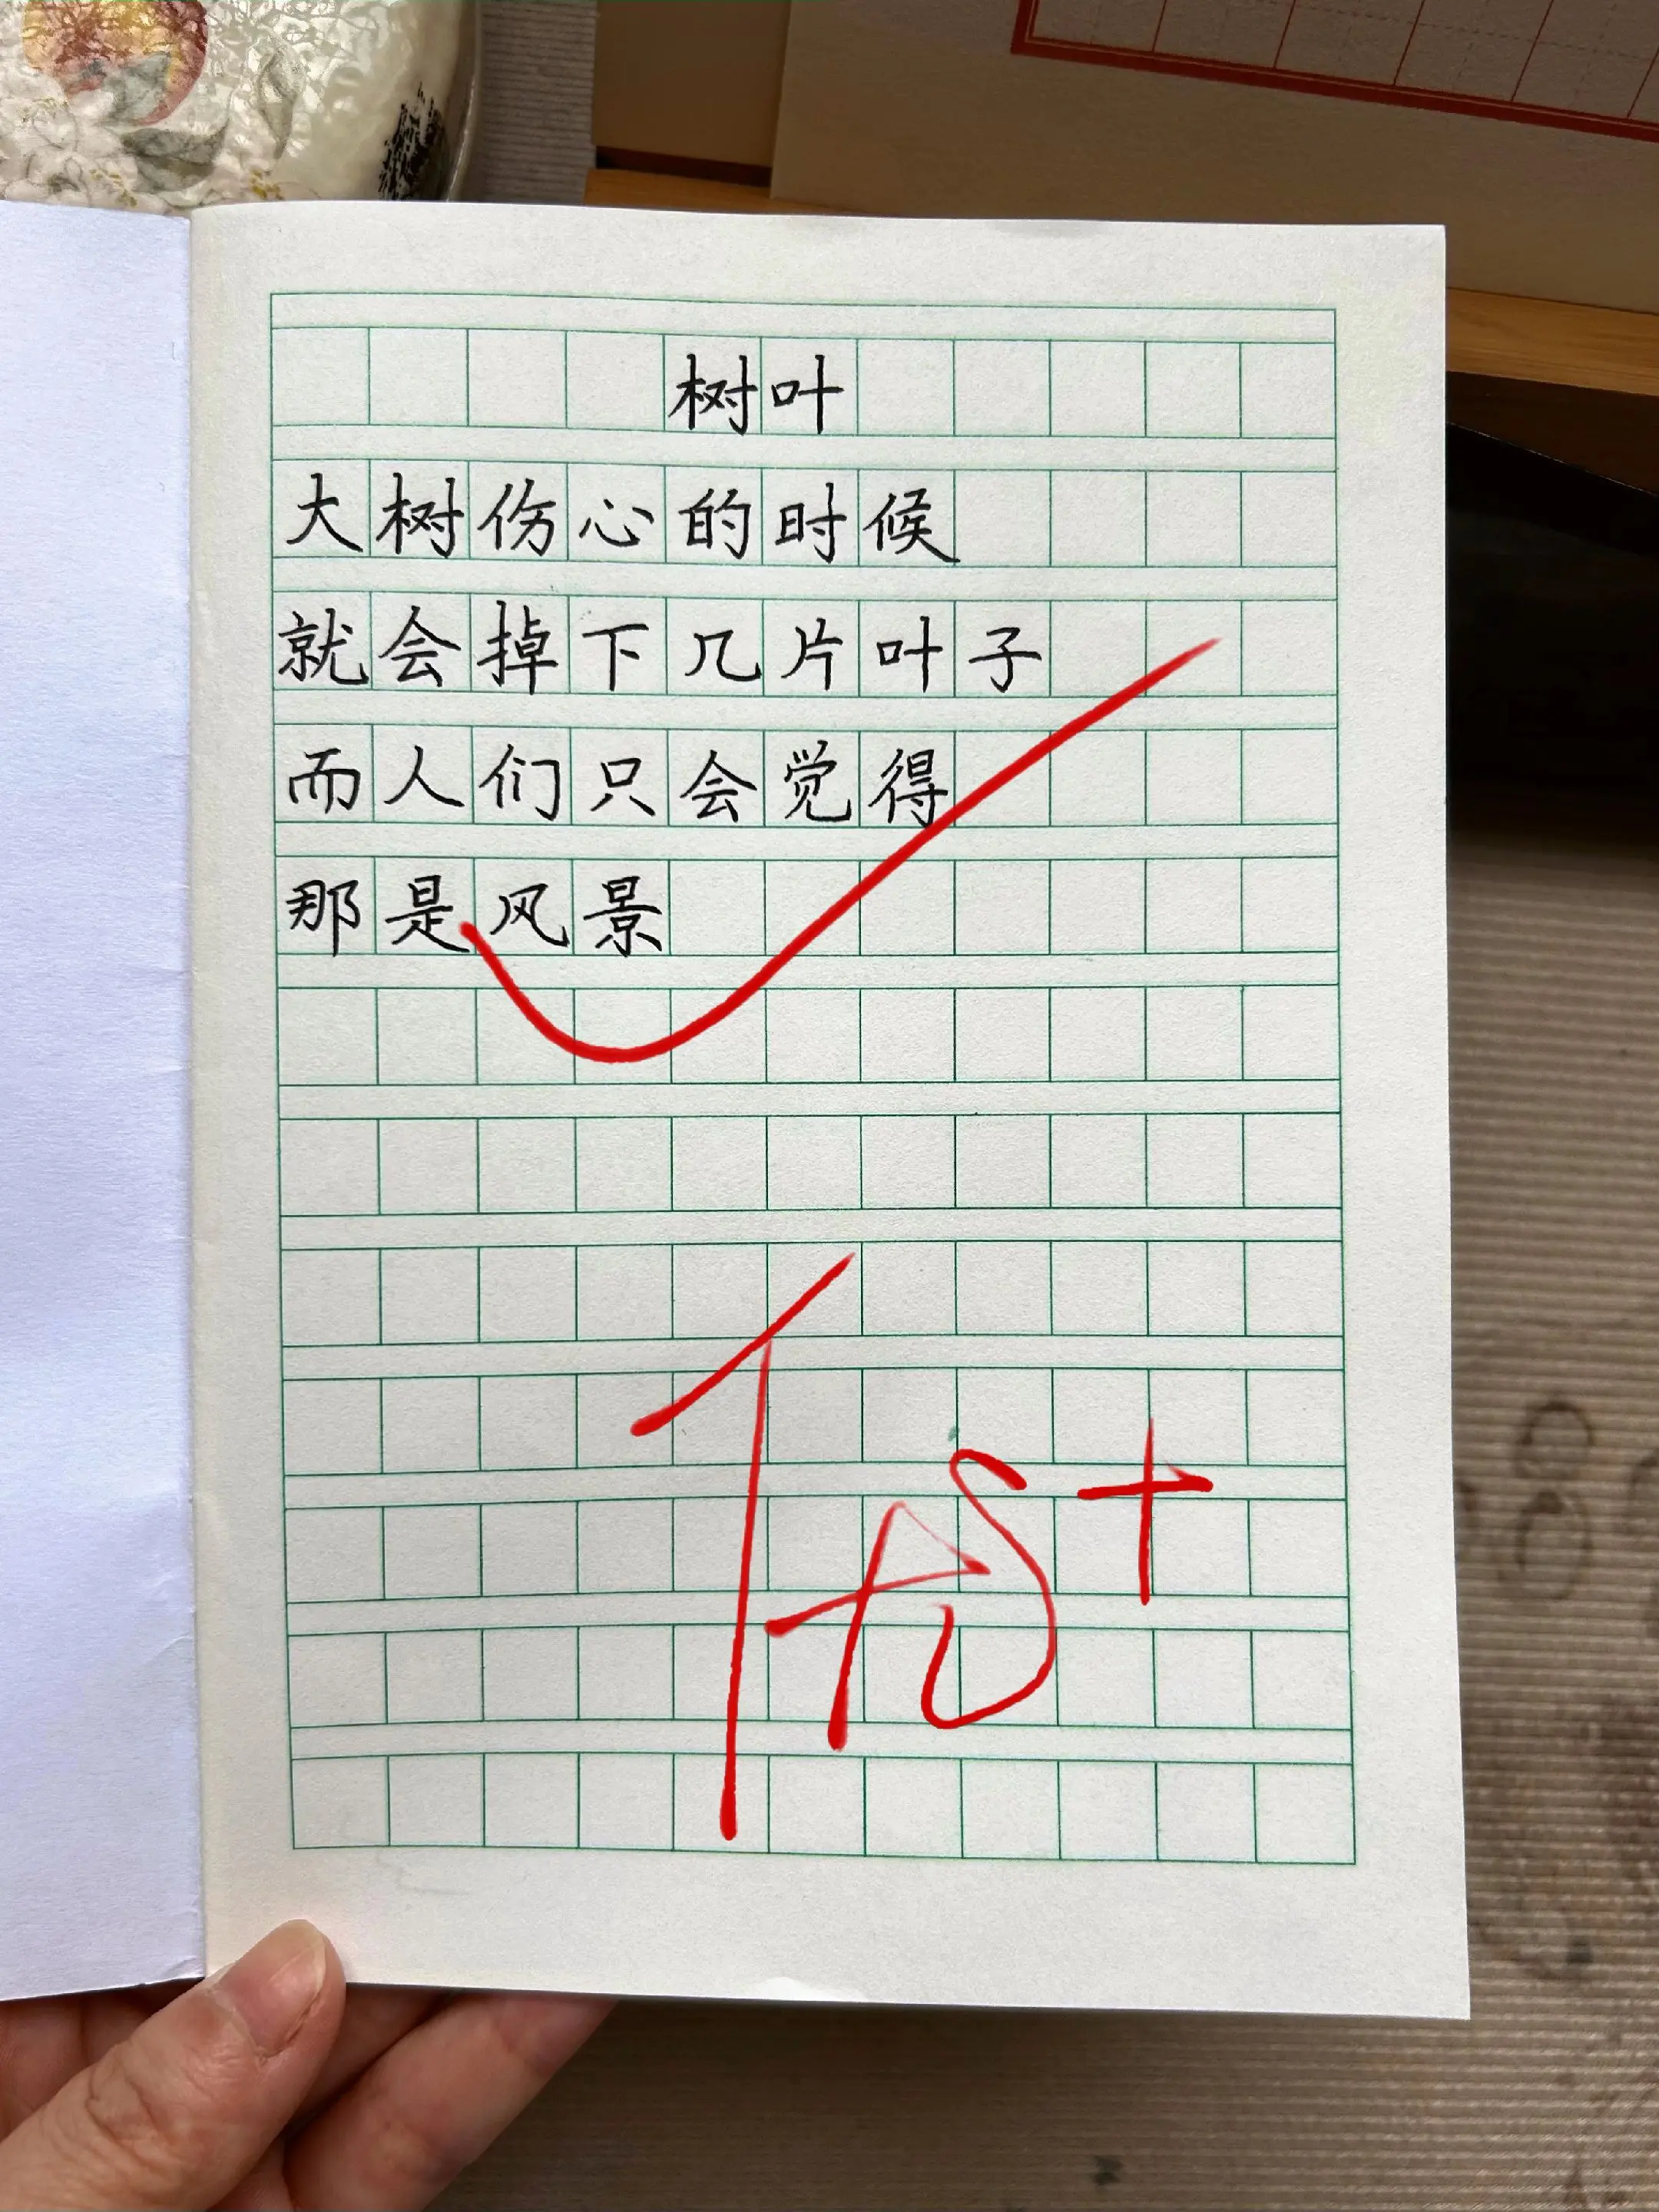 树叶
大树伤心的时候
就会掉下几片叶子
而人们只会觉得
那是风景
优+